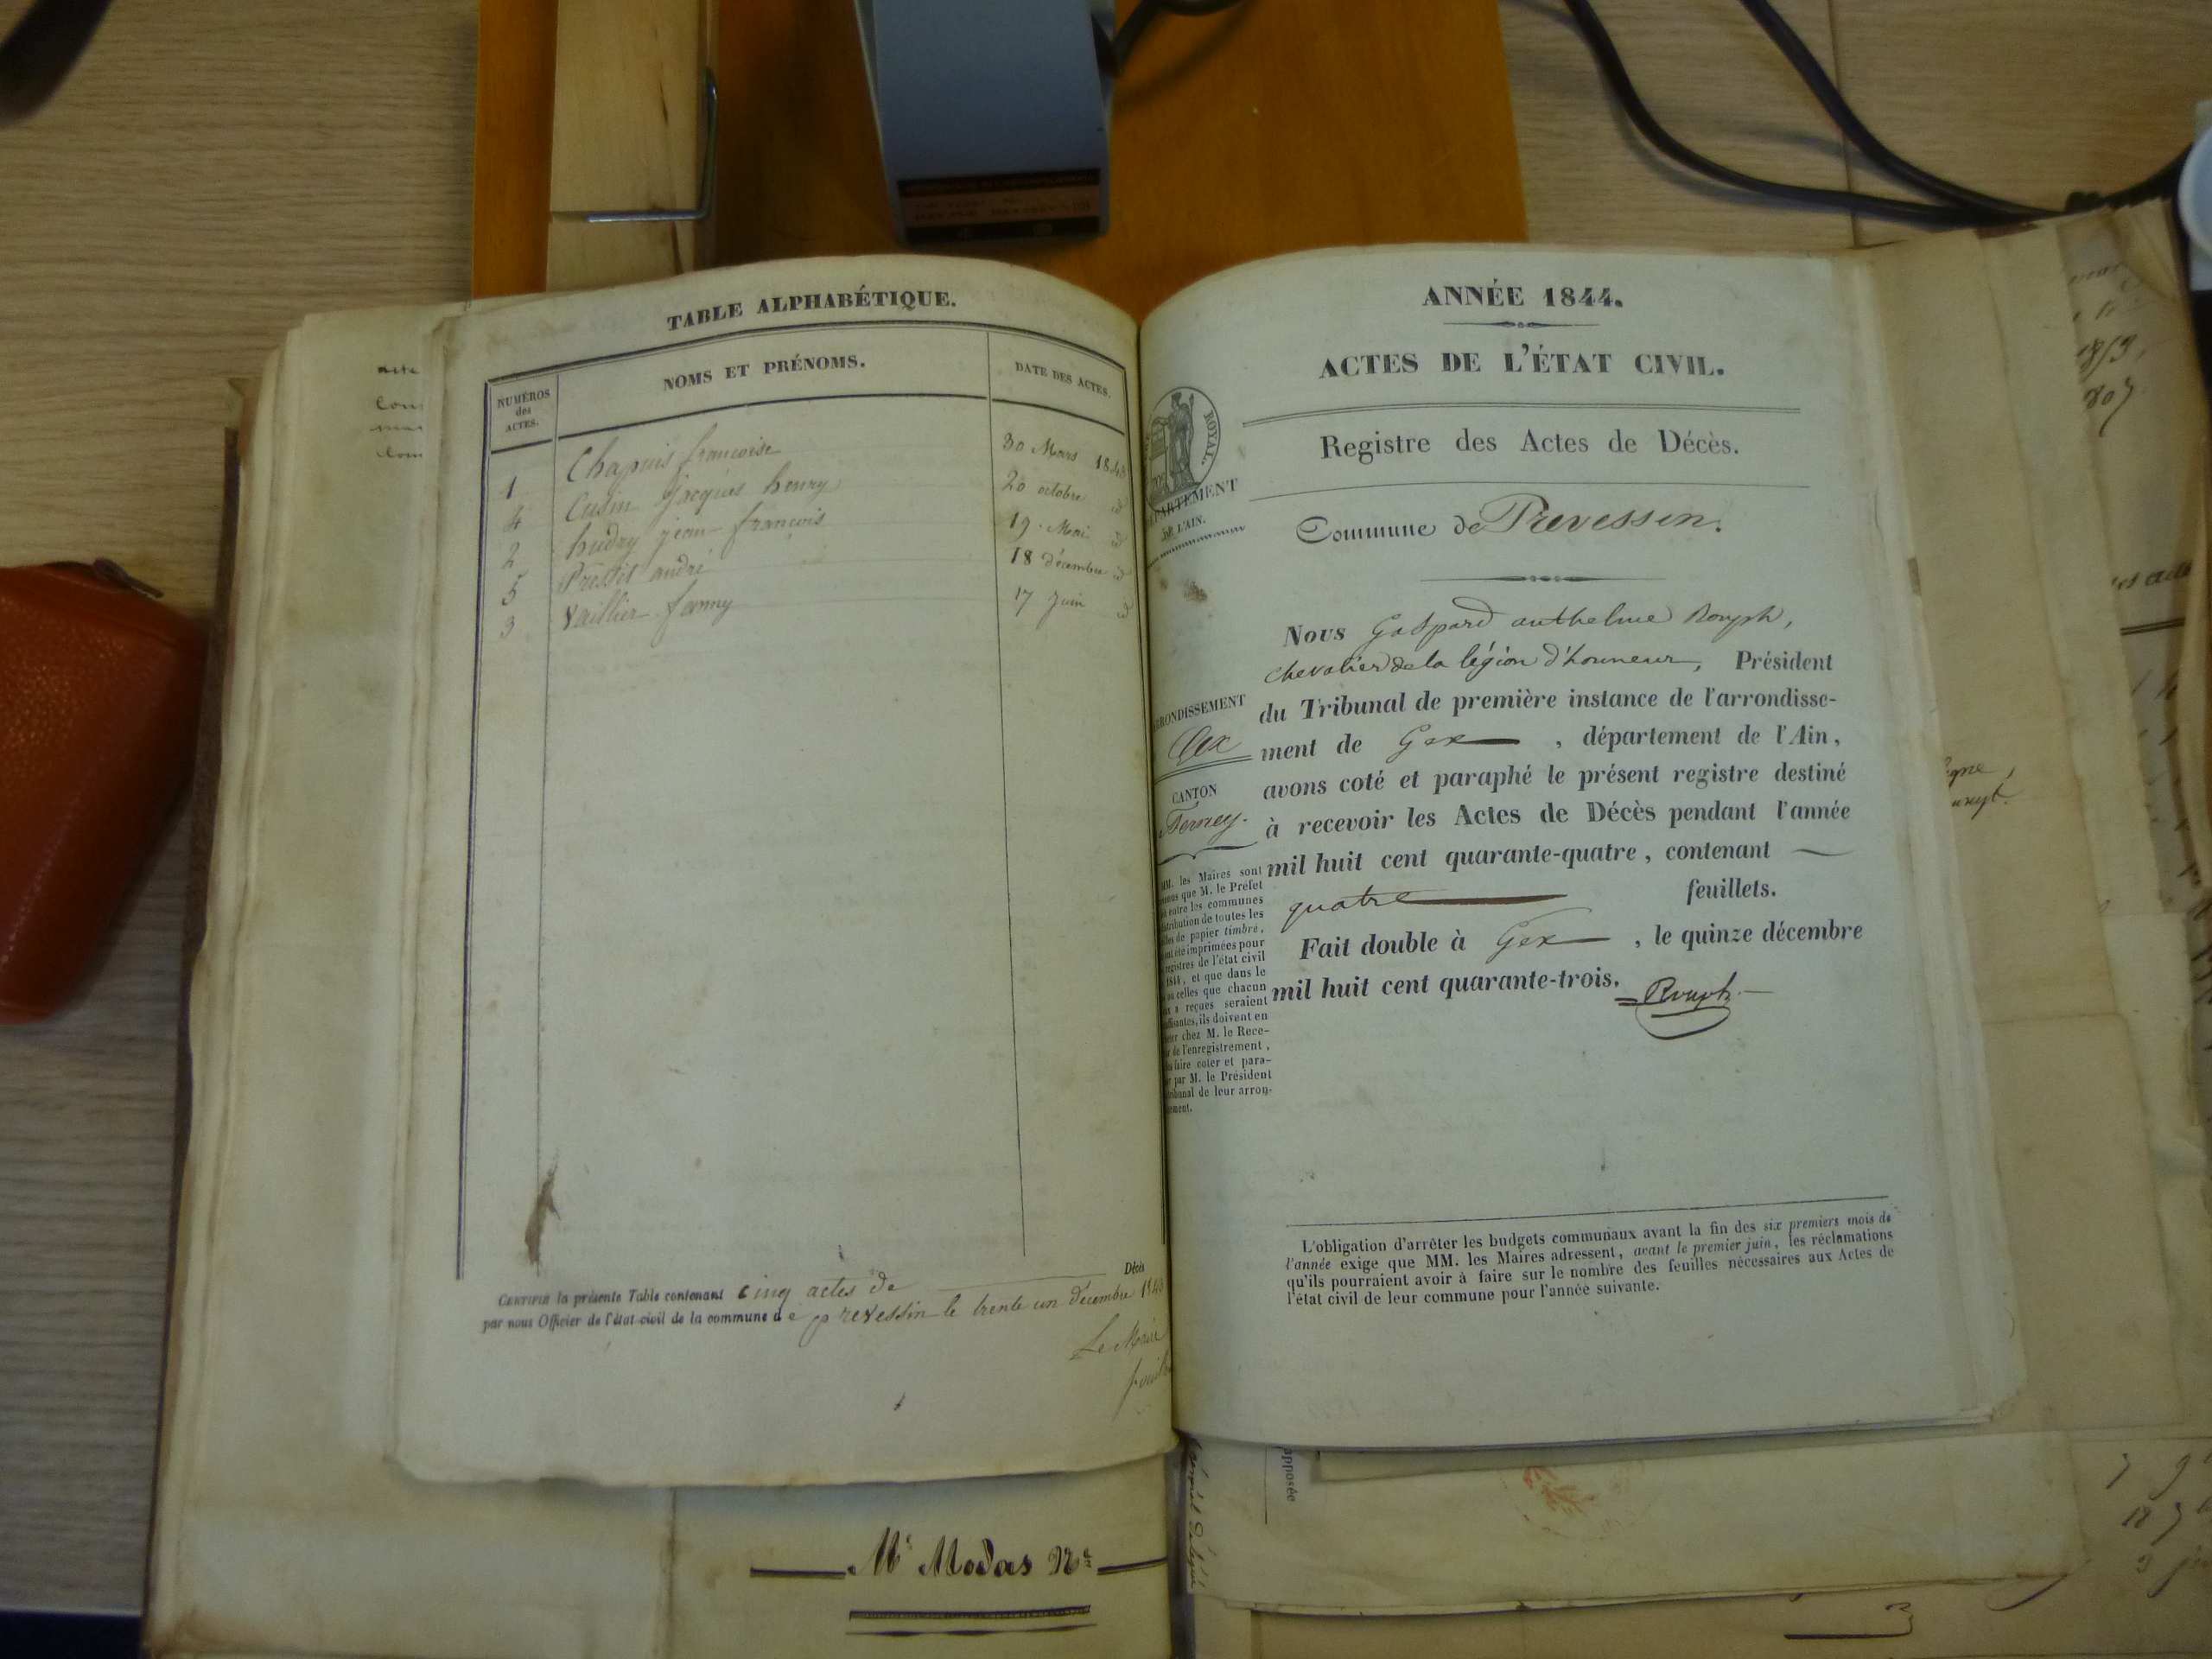 TABLE ALPHABÉTIQUE.
NUMÉROS
des
ACTES.
NOMS ET PRÉNOMS.
DATE DES ACTES.
1 Chapuis francoise 30 Mars 1843
4 Cusin jacques henry 20 octobre
2 hudry jean françois 19 Mai
5 andré 18 décembre
3 Vaillier fanny 17 Juin
CERTIFIÉ la présente Table contenant cinq actes de Décès
par nous Officier de l'état-civil de la commune de prevessin le trente un décembre 1843
Le Maire
ANNÉE 1844.
ACTES DE L'ÉTAT CIVIL.
Registre des Actes de Décès.
Commune de Prevessin.
ROYAL.
DE L'AIN.
Nous Gaspard anthelme Rouph,
chevalier de la légion d'honneur, Président
du Tribunal de première instance de l'arrondisse-
ment de Gex, département de l'Ain,
avons coté et paraphé le présent registre destiné
à recevoir les Actes de Décès pendant l'année
mil huit cent quarante-quatre, contenant
quatre feuillets.
Fait double à Gex, le quinze décembre
mil huit cent quarante-trois.
Rouph
Gex
CANTON
Ferney.
MM. les Maires sont
que M. le Préfet
entre les communes
de toutes les
de papier timbré,
été imprimées pour
registres de l'état civil
1844, et que dans le
celles que chacun
a reçues seraient
ils doivent en
chez M. le Rece-
de l'enregistrement,
faire coter et para-
par M. le Président
de leur arron-
L'obligation d'arrêter les budgets communaux avant la fin des six premiers mois de
l'année exige que MM. les Maires adressent, avant le premier juin, les réclamations
qu'ils pourraient avoir à faire sur le nombre des feuilles nécessaires aux Actes de
l'état civil de leur commune pour l'année suivante.
apposée
Me Modas